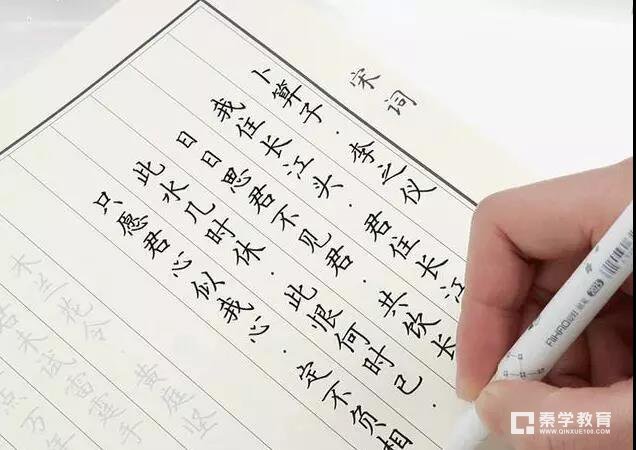 宋词
卜算子·李之仪
我住长江头·君住长江
日日思君不见君·共饮长
此水几时休·此恨何时已·
只愿君心似我心·定不负相
木兰花令·黄庭坚
未试雷霆手
点万年
AIHAO
秦学教育
WWW.QINXUE100.COM